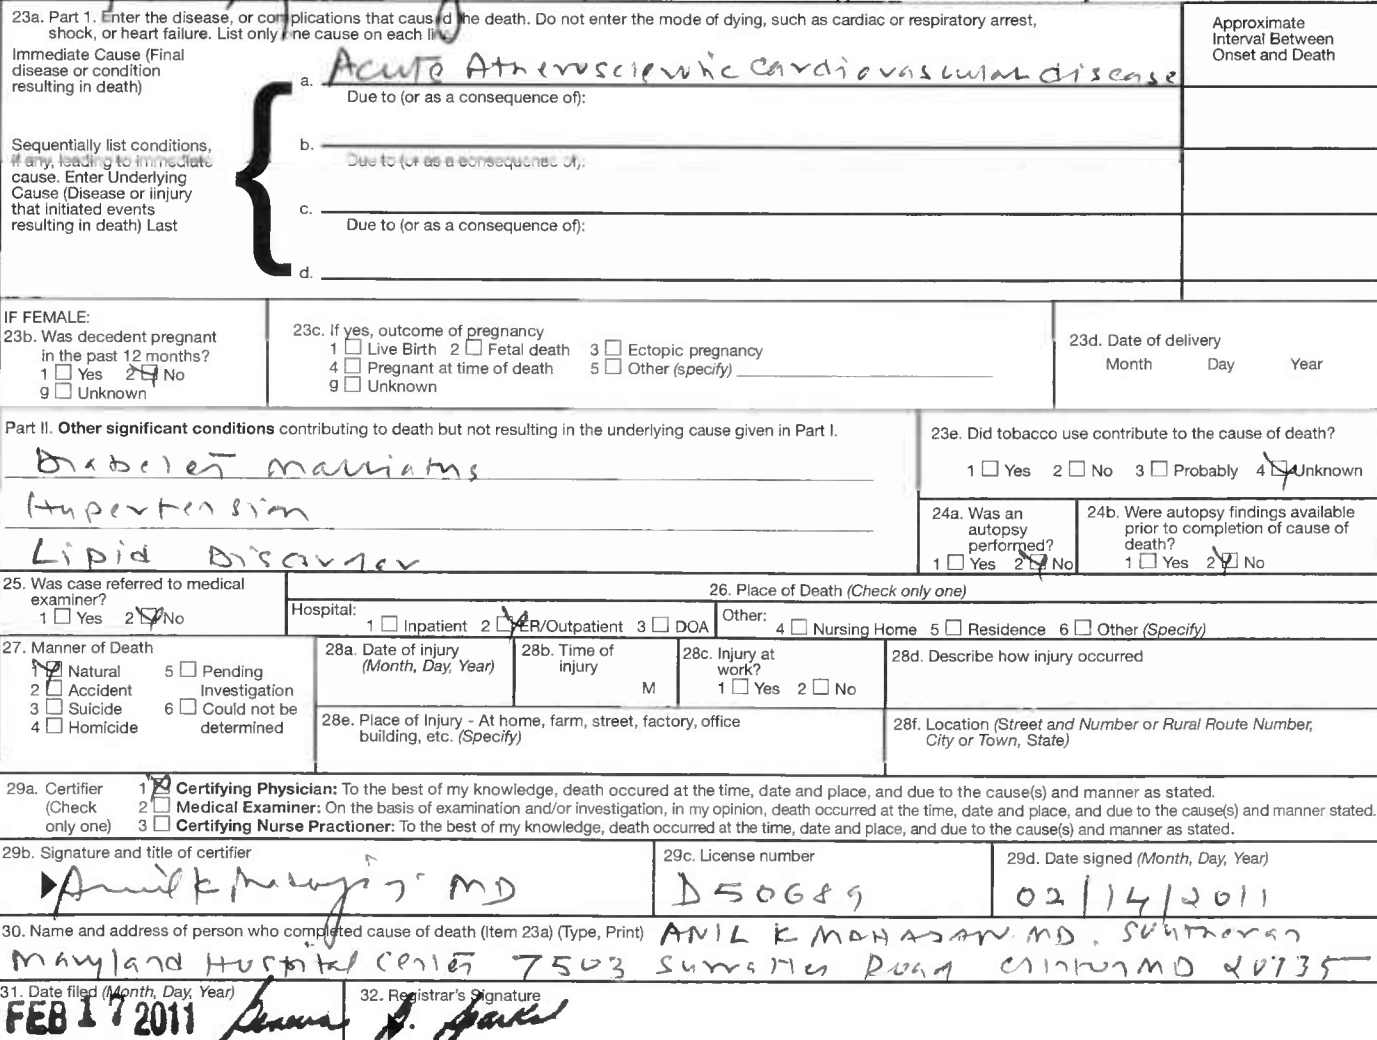 23a. Part 1. Enter the disease, or complications that caused the death. Do not enter the mode of dying, such as cardiac or respiratory arrest,
shock, or heart failure. List only one cause on each line.
Approximate
Interval Between
Onset and Death
Immediate Cause (Final
disease or condition
resulting in death)
a. Acute Atherosclerotic cardiovascular disease
Due to (or as a consequence of):
Sequentially list conditions,
if any, leading to immediate
cause. Enter Underlying
Cause (Disease or iinjury
that initiated events
resulting in death) Last
b.
Due to (or as a consequence of):
c.
Due to (or as a consequence of):
d.
IF FEMALE:
23b. Was decedent pregnant
in the past 12 months?
1 Yes 2 No
9 Unknown
23c. If yes, outcome of pregnancy
1 Live Birth 2 Fetal death 3 Ectopic pregnancy
4 Pregnant at time of death 5 Other (specify)
9 Unknown
23d. Date of delivery
Month Day Year
Part II. Other significant conditions contributing to death but not resulting in the underlying cause given in Part I.
Diabetes
Hypertension
Lipid Disorder
23e. Did tobacco use contribute to the cause of death?
1 Yes 2 No 3 Probably 4 Unknown
24a. Was an
autopsy
performed?
1 Yes 2 No
24b. Were autopsy findings available
prior to completion of cause of
death?
1 Yes 2 No
25. Was case referred to medical
examiner?
1 Yes 2 No
26. Place of Death (Check only one)
Hospital:
1 Inpatient 2 ER/Outpatient 3 DOA
Other:
4 Nursing Home 5 Residence 6 Other (Specify)
27. Manner of Death
1 Natural 5 Pending
2 Accident Investigation
3 Suicide 6 Could not be
4 Homicide determined
28a. Date of injury
(Month, Day, Year)
28b. Time of
injury
M
28c. Injury at
work?
1 Yes 2 No
28d. Describe how injury occurred
28e. Place of Injury - At home, farm, street, factory, office
building, etc. (Specify)
28f. Location (Street and Number or Rural Route Number,
City or Town, State)
29a. Certifier
(Check
only one)
1 Certifying Physician: To the best of my knowledge, death occured at the time, date and place, and due to the cause(s) and manner as stated.
2 Medical Examiner: On the basis of examination and/or investigation, in my opinion, death occurred at the time, date and place, and due to the cause(s) and manner stated.
3 Certifying Nurse Practioner: To the best of my knowledge, death occurred at the time, date and place, and due to the cause(s) and manner as stated.
29b. Signature and title of certifier
Anil K MD
29c. License number
D50689
29d. Date signed (Month, Day, Year)
02/14/2011
30. Name and address of person who completed cause of death (Item 23a) (Type, Print) ANIL K MAHAJAN MD. Southern
Maryland Hospital Center 7503 Surratts Road Clinton MD 20735
31. Date filed (Month, Day, Year)
FEB 17 2011
32. Registrar's Signature